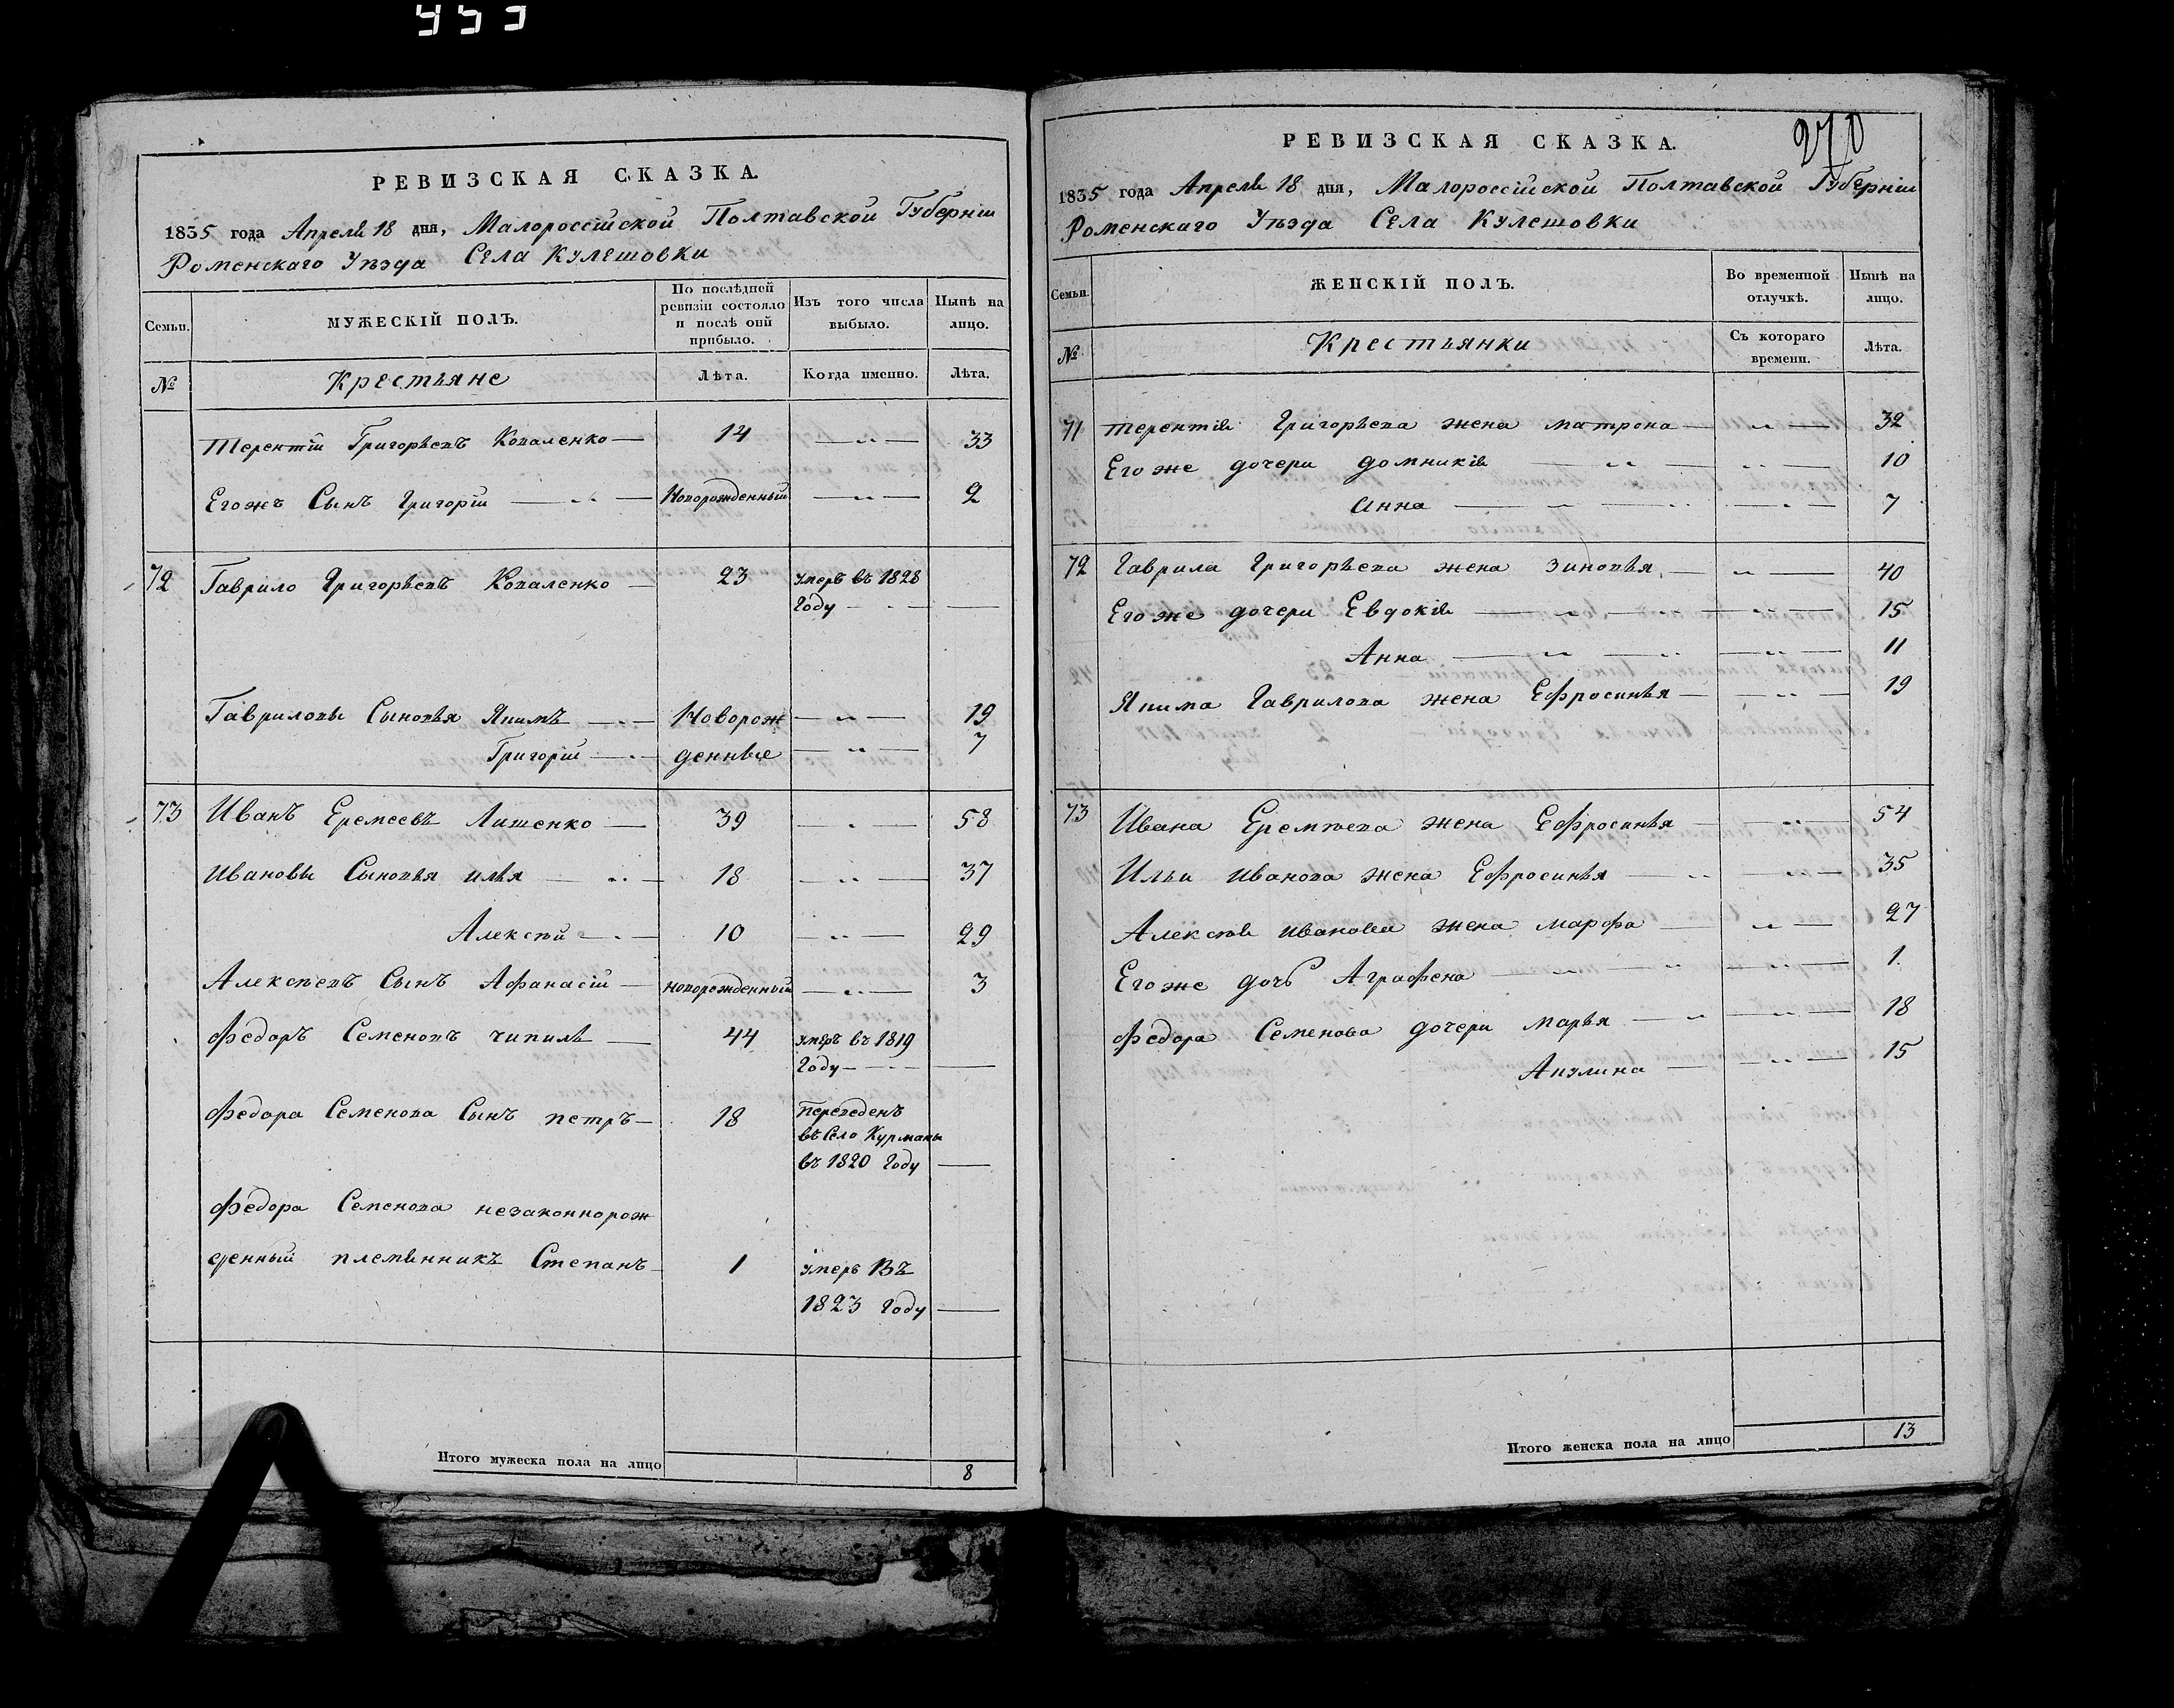 453
РЕВИЗСКАЯ СКАЗКА.
1835 года Апреля 18 дня, Малороссійской Полтавской Губерніи
Роменскаго Уѣзда Села Кулешовки
Семьи.
МУЖЕСКІЙ ПОЛЪ.
По послѣдней ревизіи состояло и послѣ оной прибыло.
Изъ того числа выбыло.
Нынѣ на лицо.
№
Крестьяне
Лѣта.
Когда именно.
Лѣта.
Терентій Григорьевъ Коваленко — 14 — „ — 33
Егожъ Сынъ Григорій — „ — Новорожденный — „ — 2
72 Гаврило Григорьевъ Коваленко — 23 умеръ въ 1828
Году — „ — —
Гавриловы Сыновья Якимъ — „ — Новорож — „ — 19
Григорій — „ — денные — „ — 7
73 Иванъ Еремеевъ Лишенко — 39 — „ — 58
Ивановы Сыновья илья — „ — 18 — „ — 37
Алексѣй — „ — 10 — „ — 29
Алексѣевъ Сынъ Афанасій — новорожденный — „ — 3
Федоръ Семеновъ чипиля — 44 умеръ въ 1819
Году — „ — —
Федора Семенова Сынъ петръ — 18 Переведенъ
въ Село Курманы
въ 1820 Году —
Федора Семенова незаконнорож
денный племянникъ Степанъ — 1 умеръ Въ
1823 Году —
Итого мужеска пола на лицо 8
270
РЕВИЗСКАЯ СКАЗКА.
1835 года Апреля 18 дня, Малороссійской Полтавской Губерніи
Роменскаго Уѣзда Села Кулешовки
Семьи.
ЖЕНСКІЙ ПОЛЪ.
Во временной отлучкѣ.
Нынѣ на лицо.
№
Крестьянки
Съ котораго времени.
Лѣта.
71 Терентія Григорьева жена матрона — „ — 32
Его же дочери домникія — „ — „ — 10
Анна — „ — „ — 7
72 Гаврила Григорьева жена зиновья — „ — 40
Его же дочери Евдокія — „ — „ — 15
Анна — „ — „ — 11
Якима Гаврилова жена Ефросинья — „ — 19
73 Ивана Еремѣева жена Ефросинья — „ — 54
Ильи иванова жена Ефросинья — „ — „ — 35
Алексѣя иванова жена марфа — „ — 27
Его же дочь Аграфена — „ — „ — 1
Федора Семенова дочери марья — „ — „ — 18
Акулина — „ — 15
Итого женска пола на лицо 13